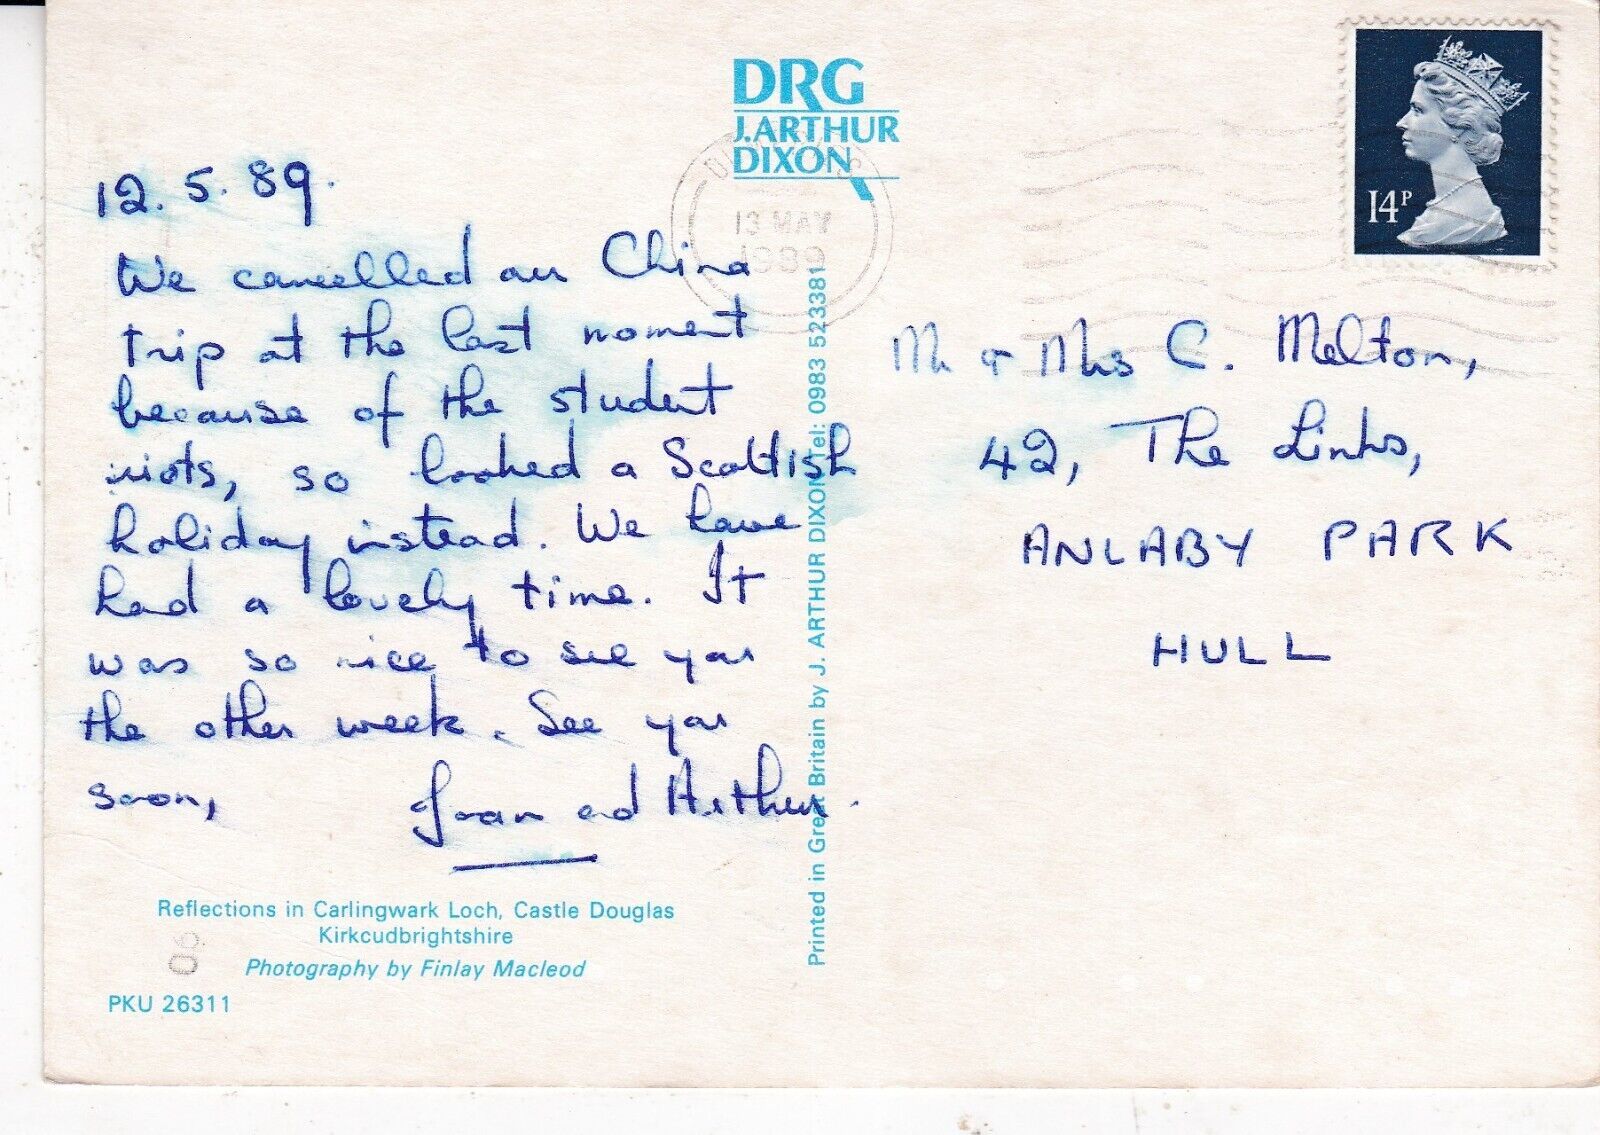 DRG
J.ARTHUR
DIXON
13 MAY
1989
14P
12.5.89.
We cancelled our China
trip at the last moment
because of the student
riots, so booked a Scottish
holiday instead. We have
had a lovely time. It
was so nice to see you
the other week. See you
soon,
Joan and Arthur.
Reflections in Carlingwark Loch, Castle Douglas
Kirkcudbrightshire
Photography by Finlay Macleod
PKU 26311
Printed in Great Britain by J. ARTHUR DIXON Tel: 0983 523381
Mr & Mrs C. Melton,
42, The Links,
ANLABY PARK
HULL